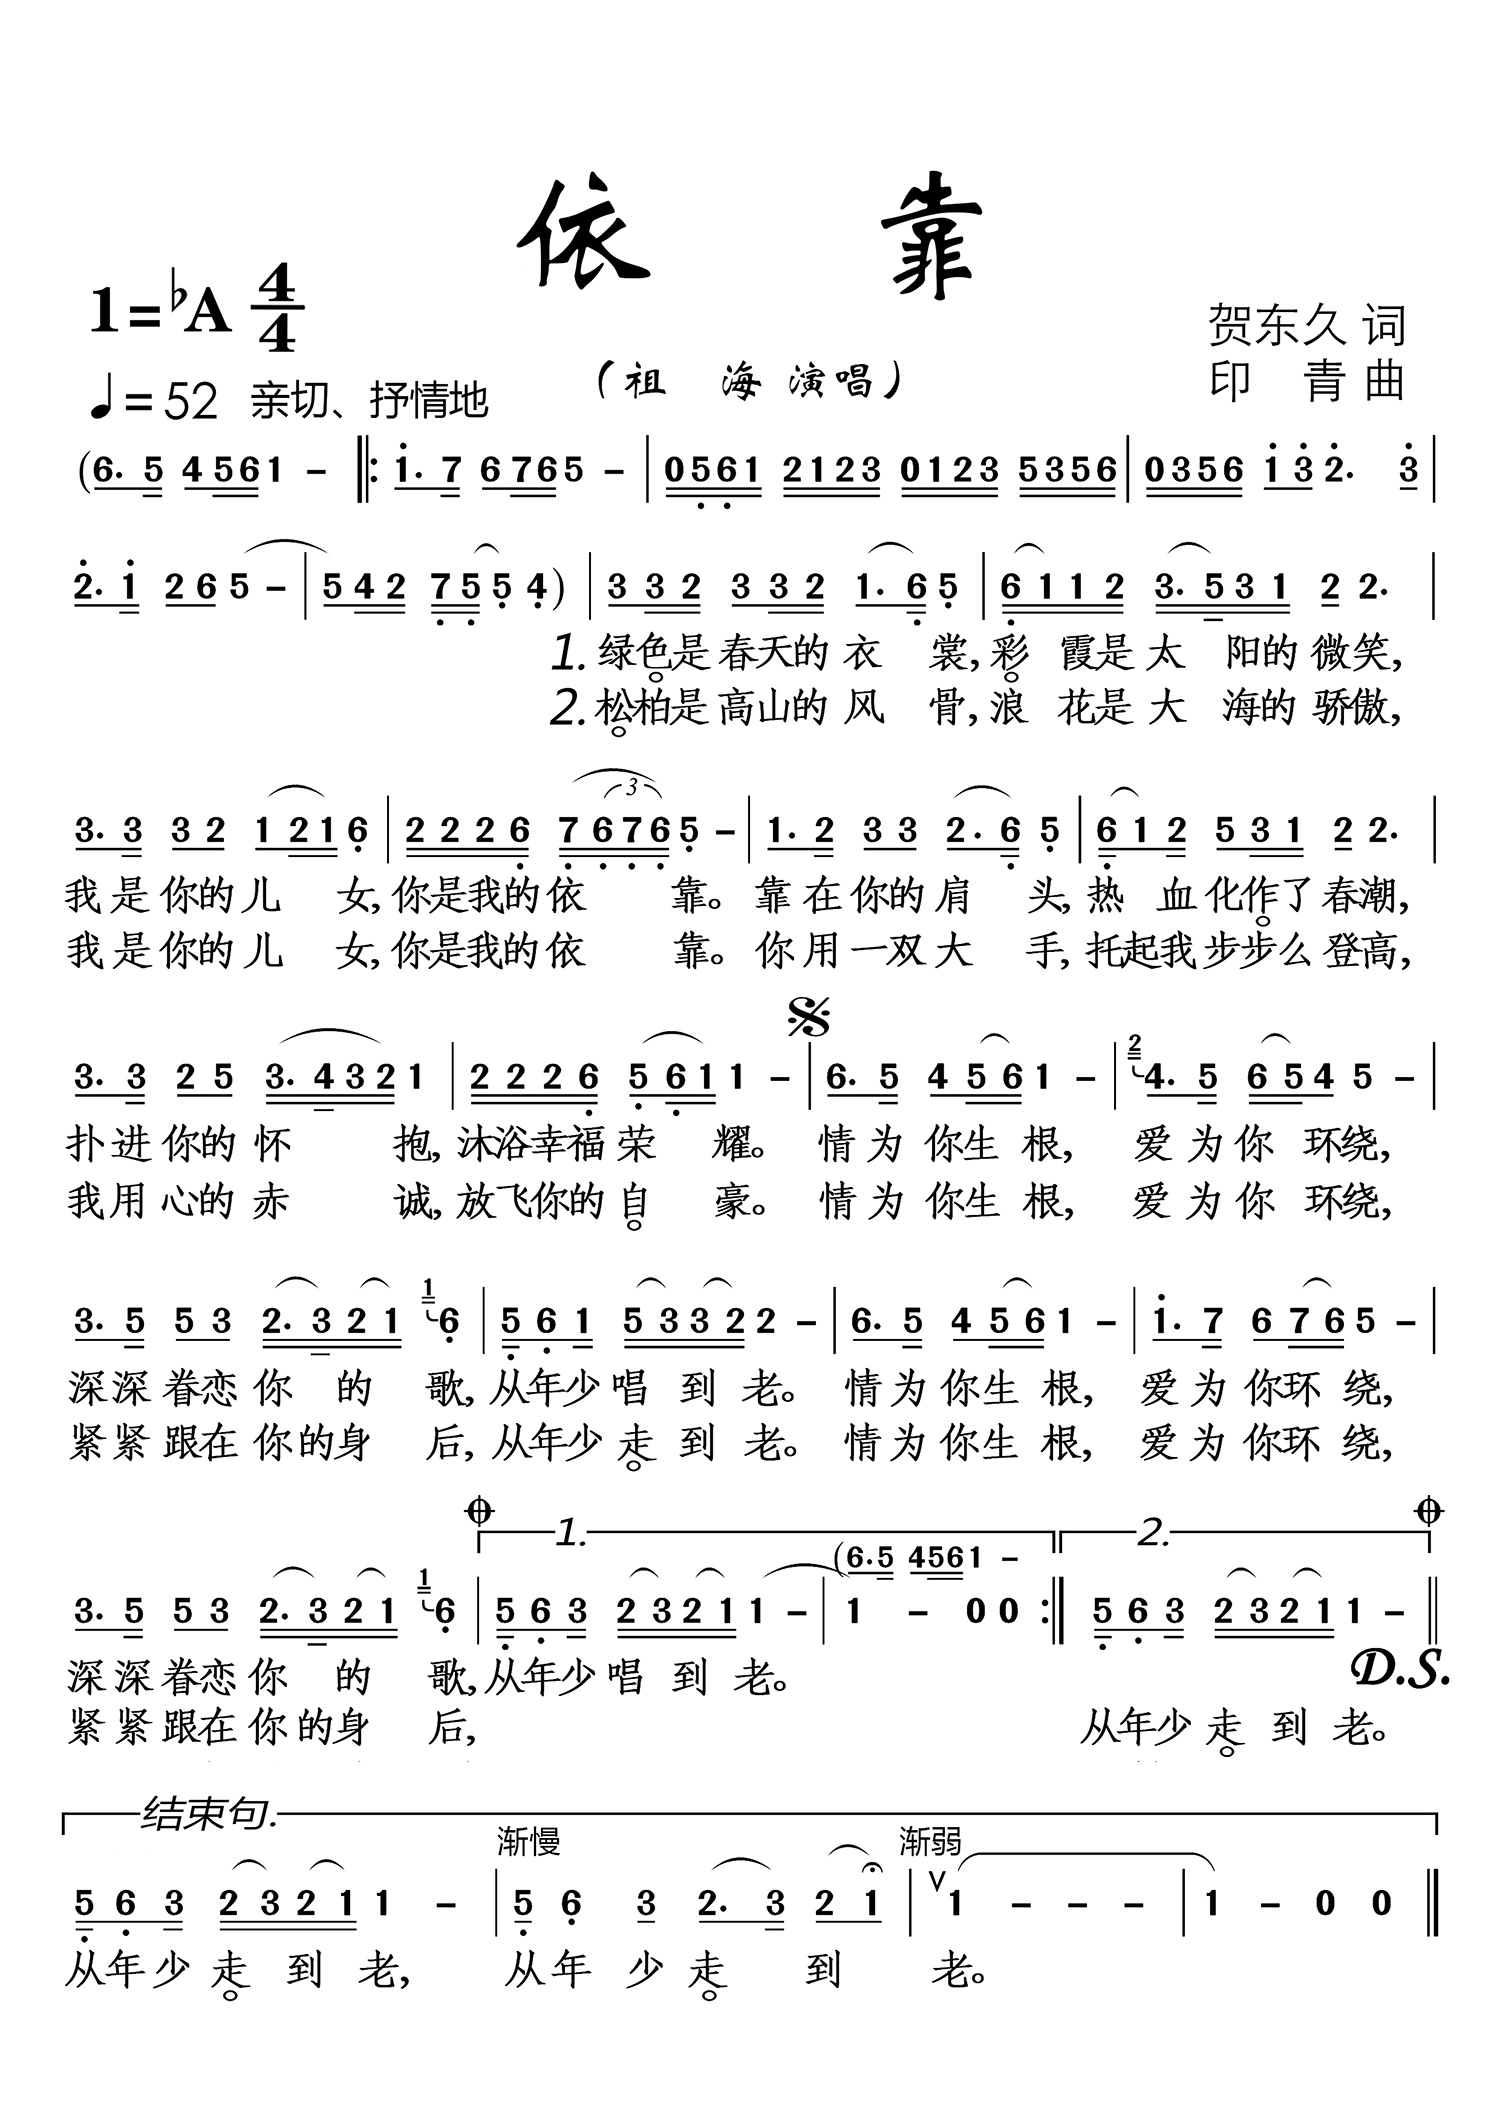 依 靠
1=♭A 4/4
贺东久 词
♩=52 亲切、抒情地
（祖 海 演唱）
印 青 曲
(6. 5 4 5 6 1 - ‖: 1. 7 6 7 6 5 - | 0 5 6 1 2 1 2 3 0 1 2 3 5 3 5 6 | 0 3 5 6 1 3 2. 3 |
2. 1 2 6 5 - | 5 4 2 7 5 5 4 ) | 3 3 2 3 3 2 1. 6 5 | 6 1 1 2 3. 5 3 1 2 2. |
1. 绿色是春天的衣 裳, 彩 霞是太 阳的微笑,
2. 松柏是高山的风 骨, 浪 花是大 海的骄傲,
3. 3 3 2 1 2 1 6 | 2 2 2 6 7 6 7 6 5 - | 1. 2 3 3 2. 6 5 | 6 1 2 5 3 1 2 2. |
3
我是你的儿 女, 你是我的依 靠。靠在你的肩 头, 热 血化作了春潮,
我是你的儿 女, 你是我的依 靠。你用一双大 手, 托起我步步么登高,
3. 3 2 5 3. 4 3 2 1 | 2 2 2 6 5 6 1 1 - | 6. 5 4 5 6 1 - | 2 4. 5 6 5 4 5 - |
扑进你的怀 抱, 沐浴幸福荣 耀。情为你生根, 爱为你 环绕,
我用心的赤 诚, 放飞你的自 豪。情为你生根, 爱为你 环绕,
3. 5 5 3 2. 3 2 1 1 6 | 5 6 1 5 3 3 2 2 - | 6. 5 4 5 6 1 - | 1. 7 6 7 6 5 - |
深深眷恋你 的 歌, 从年少唱 到 老。情为你生根, 爱为你环 绕,
紧紧跟在你的身 后, 从年少走 到 老。情为你生根, 爱为你环 绕,
1. 2.
(6. 5 4 5 6 1 -
3. 5 5 3 2. 3 2 1 1 6 | 5 6 3 2 3 2 1 1 - | 1 - 0 0 :‖ 5 6 3 2 3 2 1 1 - ‖
D.S.
深深眷恋你 的 歌, 从年少唱 到 老。
紧紧跟在你的身 后, 从年少走 到 老。
结束句.
渐慢 渐弱
5 6 3 2 3 2 1 1 - | 5 6 3 2. 3 2 1 | ∨ 1 - - - | 1 - 0 0 ‖
从年少走 到 老, 从年 少走 到 老。